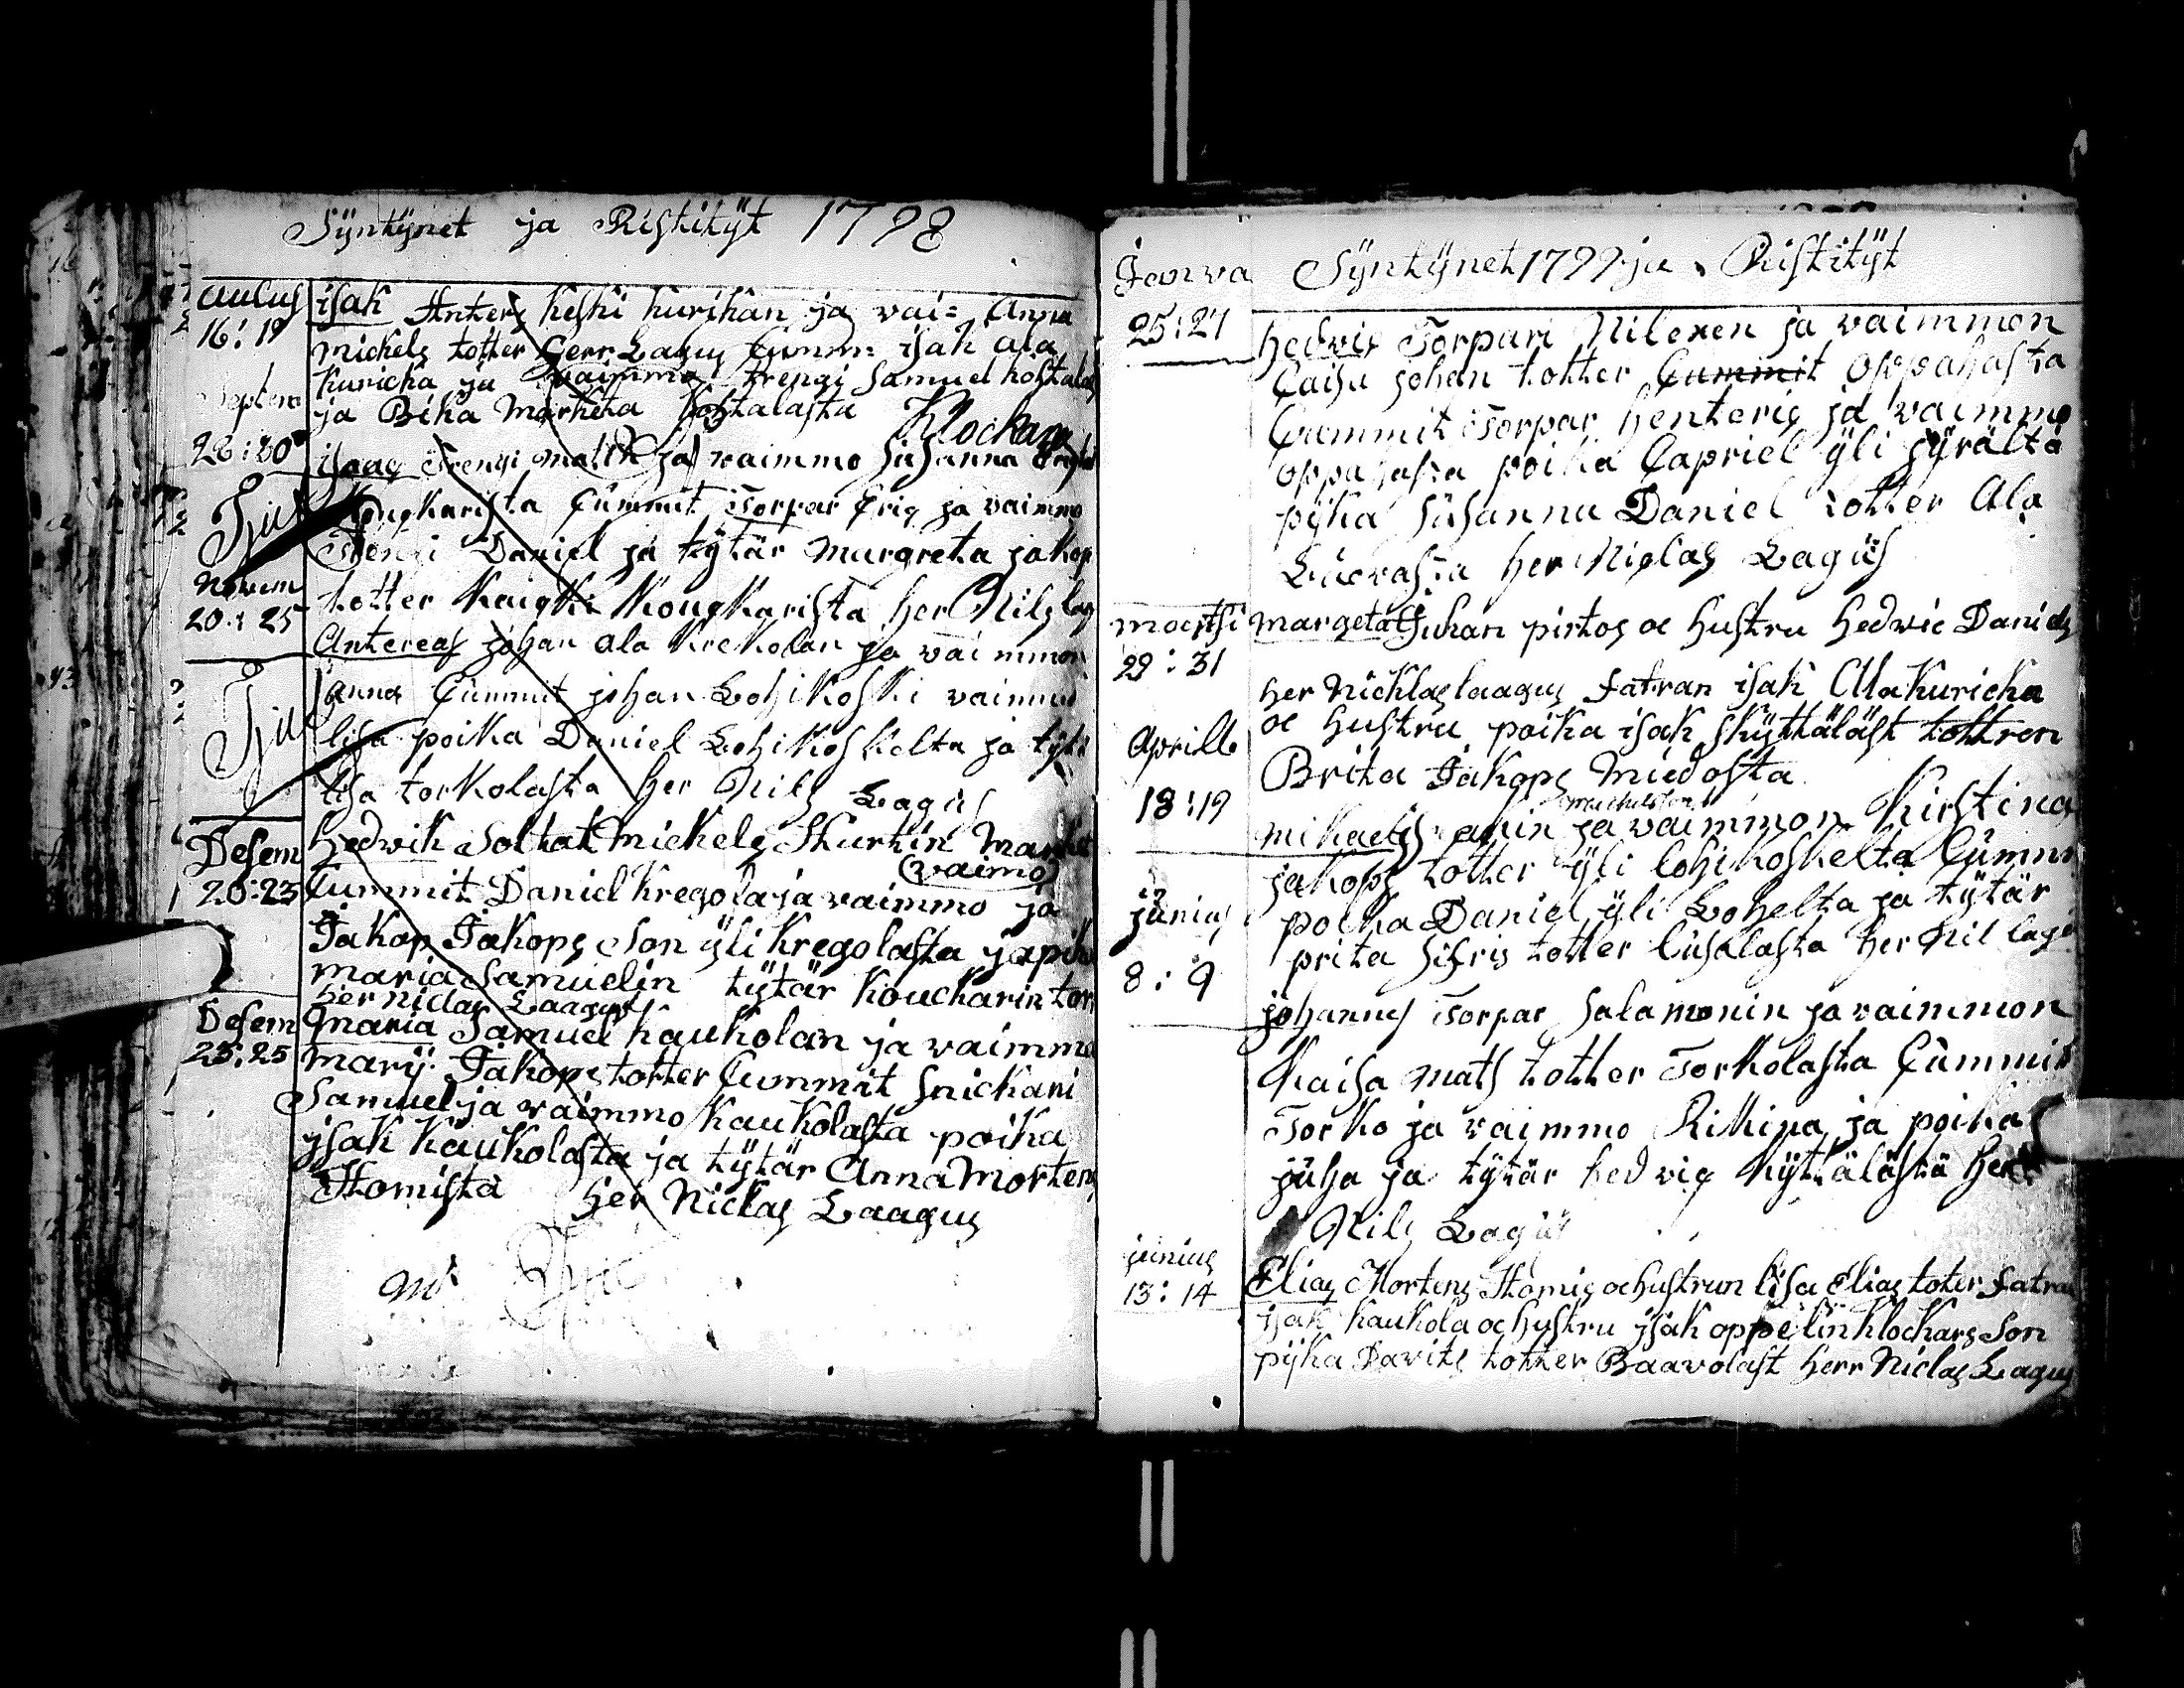 Syntynet ja Ristityt 1798
Aulus
16:19
isak Anters keski kurikan ja vai= Anna
mickels totter Herr Lagus Cumm isak ala
kuricka ja vaimmo trengi Samuel
ja Bika Marketa
Klockars
Septem
28:30
isaac Trengi matik ja vaimmo Susanna
Koukarista Cummit Torpar Eriq ja vaimmo
Trengi Daniel ja tytär Murgreta jakop
totter Koukkarista her Nils lag
Novem
20:25
Antereas johan ala Krekolan ja vaimmon
anna Cummit johan Lohikoski vaimmo
lisa poika Daniel Lohikoskelta ja tyt
lisa torkolasta her Nils Lagus
Desem
20:23
hedwik Soltat Mickels Skurkin
vaimo
Cummit Daniel Kregola ja vaimmo ja
Jakop Jakops Son yli kregolasta ja pik
maria Samuelin tytär Kouckarin tor
her niclas Laagus
Desem
23:25
maria Samuel kaukolan ja vaimmo
marij Jakops totter Cummit Snickari
Samuel ja vaimmo kaukolasta poika
jsak kaukolasta ja tytär Anna Mortens
Stomista her Nicklas Laagus
Janva Syntynet 1799 ja Ristityt
25:27
hedvig Torpari Nilexen ja vaimmon
Caisa johan totter Cummit Oppahasta
Cummit Torpar henteriq ja vaimmo
oppahasta poika Capriel yli jyrältä
pyka Susanna Daniel totter Ala
her Niglas Lagus
maertsi
29:31
margeta Juhan pirtos oc hustru hedwic Daniels
her Nicklas laagus fatran isak Alakuricka
oc hustru poika isak skyttäläst tottren
Brita Jakops Miedosta
Aprill
18:19
mikaels ja vaimmon Kirstina
jakops totter yli lohikoskelta Cummi
poika Daniel yli Lohelta ja tytär
prita Sifris totter lusalasta her Nil lagu
junius
8:9
johannes Torpar Salamonin ja vaimmon
Kaisa mats totter Torkolasta Cummit
Torko ja vaimmo Rikina ja poika
juha ja tytär hedvig kyttälästä her
Nils Lagus
junius
13:14
Elias Mortens Stomis oc hustrun lisa Elias toter fatra
jsak kaukola oc hustru jsak oppelin klockars Son
pyka Davits totter Baavolast Herr Niclas Lagus